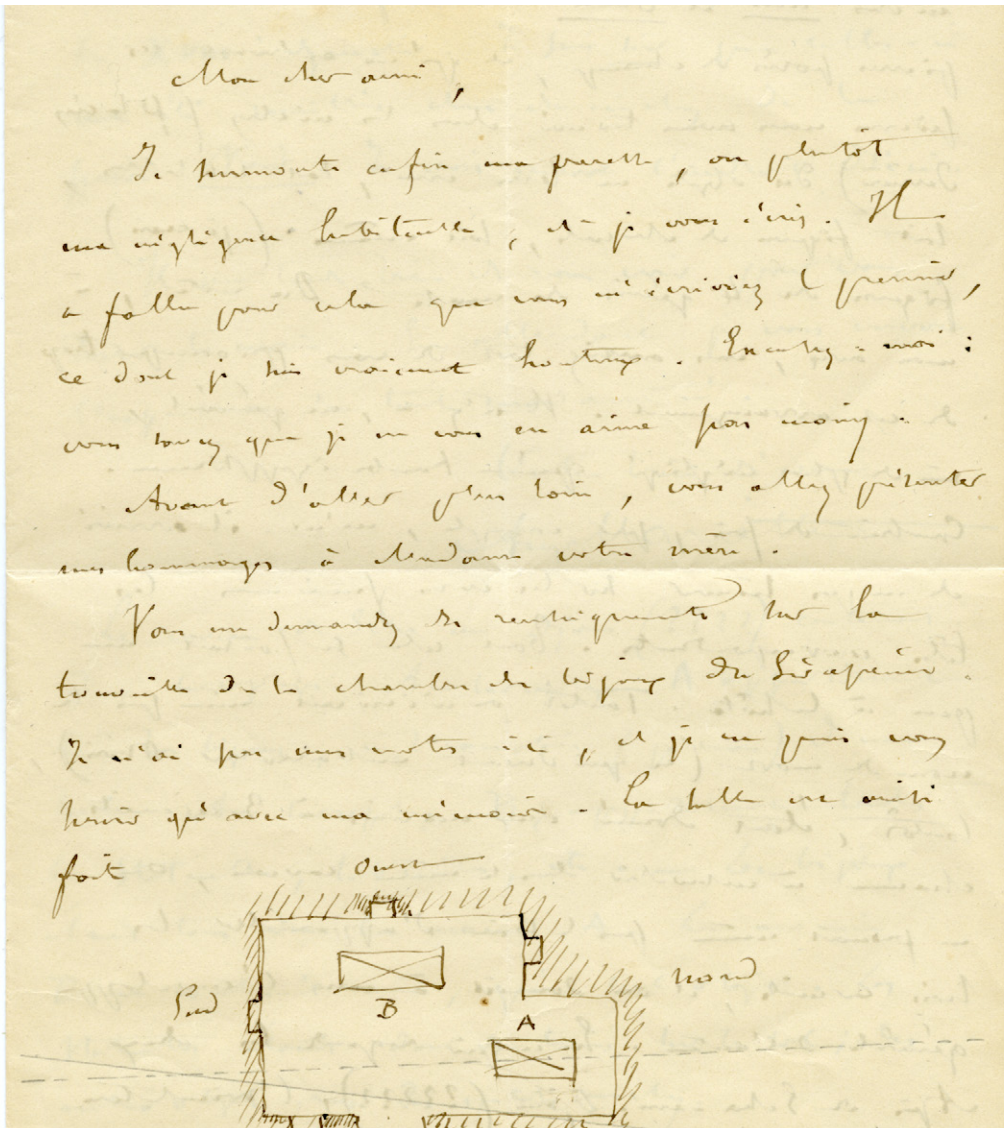 Mon cher ami,
Je surmonte enfin ma paresse, ou plutôt
ma négligence habituelle, et je vous écris. Il
a fallu pour cela que vous m'écriviez le premier,
ce dont je suis vraiment honteux. Excusez-moi :
vous savez que je ne vous en aime pas moins.
Avant d'aller plus loin, vous allez présenter
mes hommages à Madame votre mère.
Vous me demandez des renseignements sur la
trouvaille de la chambre des bijoux du Sérapéum.
Je n'ai pas mes notes ici, et je ne puis vous
servir qu'avec ma mémoire. La salle est ainsi
fait
Ouest
Sud
B
nord
A